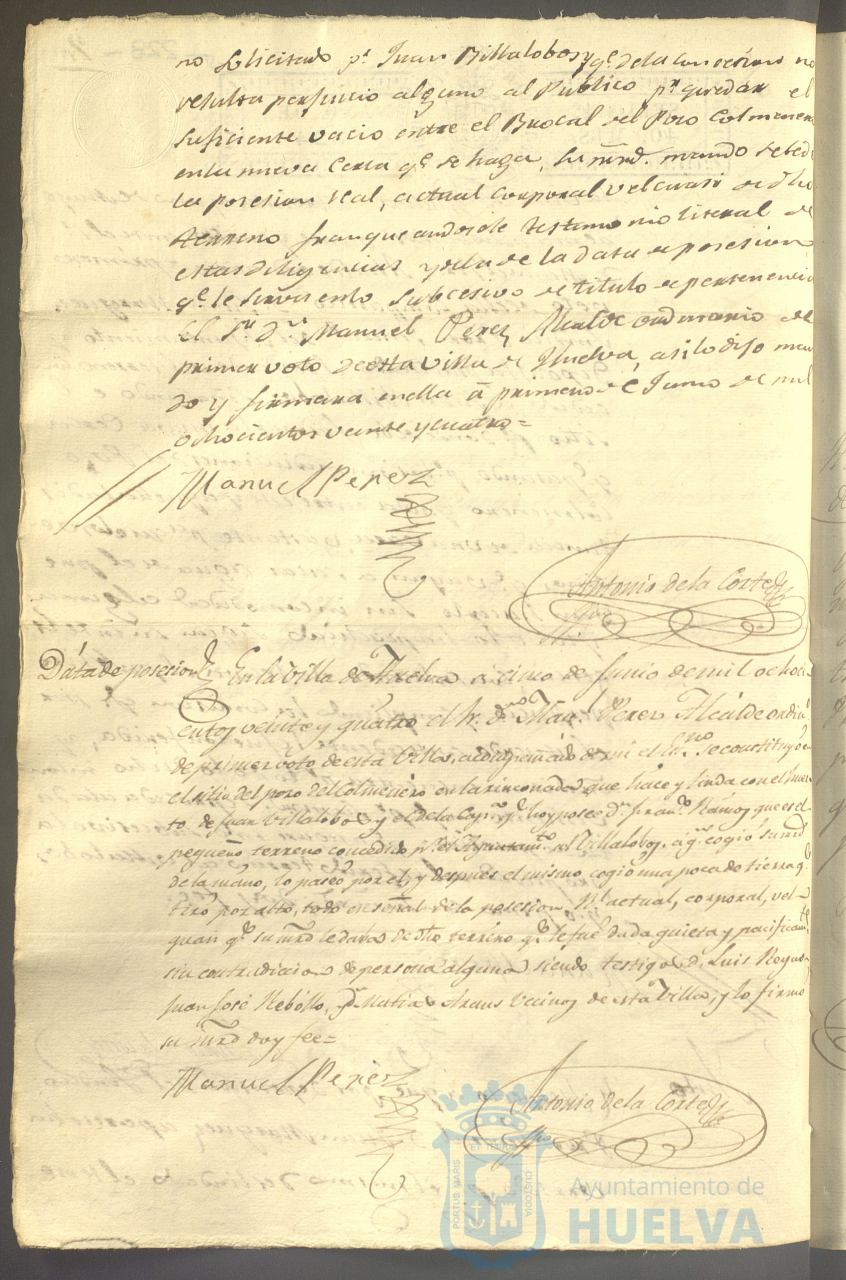 no solicitado pr. Juan Billalobos y qe. de la concecion no
resulta perjuicio alguno al Publico pr. quedar el
suficiente vacio entre el Brocal del Poso Colmenero
en la nueva Cerca qe. se haga, su mrd. mando se le de
la posesion real, actual corporal vel cuasi de dho
terreno franqueandosele testimonio literal de
estas diligencias y de la de la data de posesion
qe. le sirva en lo subcesivo de titulo de pertenencia
El Sr. Dn. Manuel Perez Alcalde ordinario de
primer voto de esta villa de Huelva, asi lo dijo man
do y firmara en ella a primero de Junio de mil
ochocientos veinte y cuatro=
Manuel Perez
Antonio de la Corte
Data de posesion
En la Villa de Huelva a cinco de Junio de mil ochoci-
entos veinte y quatro el Sr. Dn. Man.l Perez Alcalde ordin.
de primer voto de esta Villa, acompañado de mi el Sno. se constituyó en
el sitio del poso del Colmenero en la rinconada que hace y linda con el huer-
to de Juan Villalobos y el de la qe. hoy posee Dn. Franco. Ramos que es el
pequeño terreno concedido pr. el Ayuntamto. al Villalobos, a qn. cogió su mrd
de la mano, lo paseó por el, y despues el mismo cogió una poca de tierra q.
tiró por alto, todo en señal de la posesion Rl. actual, corporal, vel-
quasi qe. su mrd le daba de dho terreno qe. le fue dada quieta y pacificamte.
sin contradicion de persona alguna siendo testigos D. Luis
Juan José Rebollo, y Matias Arans Vecinos de esta Villa, y lo firmó
su mrd doy fee=
Manuel Perez
Antonio de la Corte
PORTUS MARIS
ET TERRAE
CUSTODIA
Ayuntamiento de
HUELVA